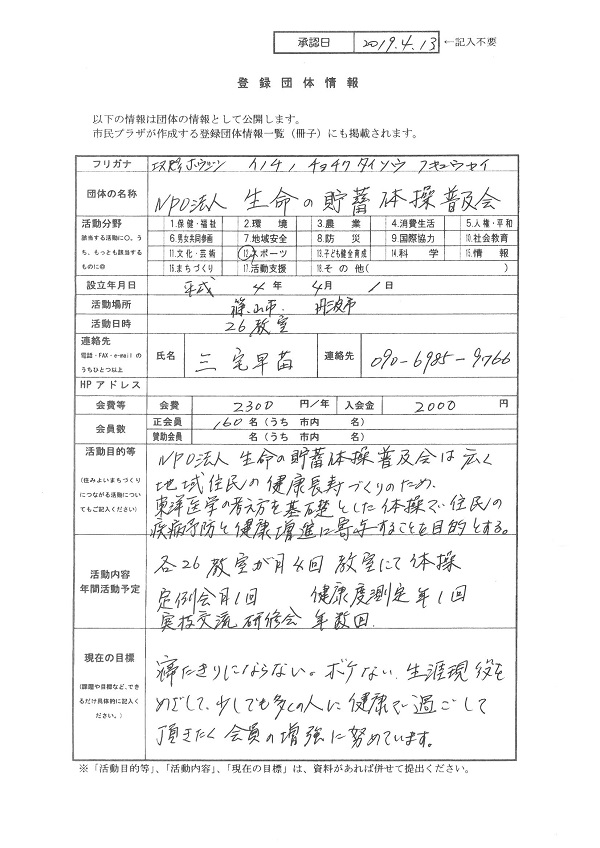 承認日 2019.4.13 ←記入不要
登録団体情報
以下の情報は団体の情報として公開します。
市民プラザが作成する登録団体情報一覧（冊子）にも掲載されます。
フリガナ イノチノ チョチク タイソウ フキュウカイ
団体の名称 NPO法人 生命の貯蓄体操普及会
活動分野 1.保健・福祉 2.環境 3.農業 4.消費生活 5.人権・平和
該当する活動に○。う 6.男女共同参画 7.地域安全 8.防災 9.国際協力 10.社会教育
ち、もっとも該当する 11.文化・芸術 12.スポーツ 13.子ども健全育成 14.科学 15.情報
ものに◎ 16.まちづくり 17.活動支援 18.その他( )
設立年月日 平成 4年 4月 1日
活動場所 篠山市. 丹波市
活動日時 26教室
連絡先
電話・FAX・e-mailの
うちひとつ以上
氏名 三宅早苗 連絡先 090-6985-9766
HPアドレス
会費等 会費 2300 円/年 入会金 2000 円
会員数 正会員 160名（うち 市内 名）
賛助会員 名（うち 市内 名）
活動目的等
（住みよいまちづくり
につながる活動につい
てもご記入ください）
NPO法人 生命の貯蓄体操普及会は広く
地域住民の健康長寿づくりのため、
東洋医学の考え方を基礎とした体操で住民の
疾病予防と健康増進に寄与することを目的とする。
活動内容
年間活動予定
各26教室が月4回 教室にて体操
定例会月1回 健康度測定年1回
実技交流研修会 年数回.
現在の目標
（課題や目標など、でき
るだけ具体的に記入く
ださい。）
寝たきりにならない。ボケない 生涯現役を
めざして、少しでも多くの人に健康で過ごして
頂きたく会員の増強に努めています。
※「活動目的等」、「活動内容」、「現在の目標」は、資料があれば併せて提出ください。